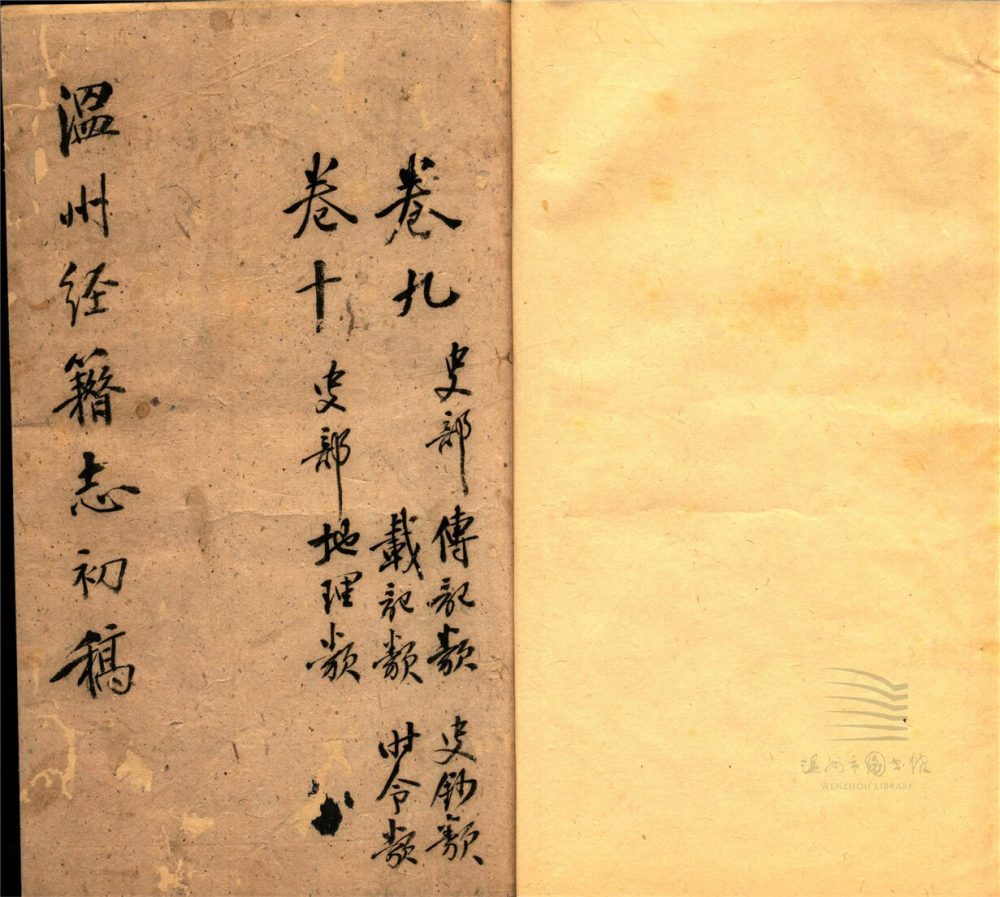 卷九 史部 傳記類 史鈔類
載記類 時令類
卷十 史部 地理類
溫州经籍志初稿
温州市图书馆
WENZHOU LIBRARY